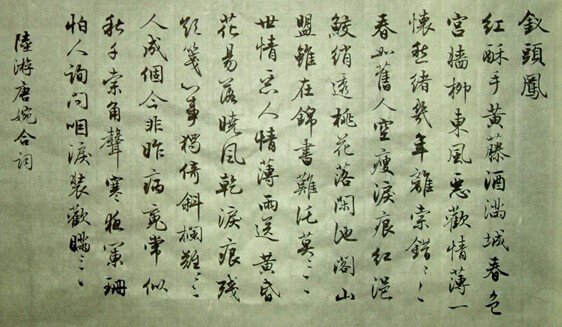 釵頭鳳
紅酥手黃藤酒滿城春色
宮牆柳東風惡歡情薄一
懷愁緒幾年離索錯〻〻
春如舊人空瘦淚痕紅浥
鮫綃透桃花落閑池閣山
盟雖在錦書難托莫〻〻
世情惡人情薄雨送黃昏
花易落曉風乾淚痕殘
欲箋心事獨倚斜欄難〻〻
人成個今非昨病魂常似
秋千索角聲寒夜闌珊
怕人詢問咽淚裝歡瞞〻〻
陸游唐婉合詞